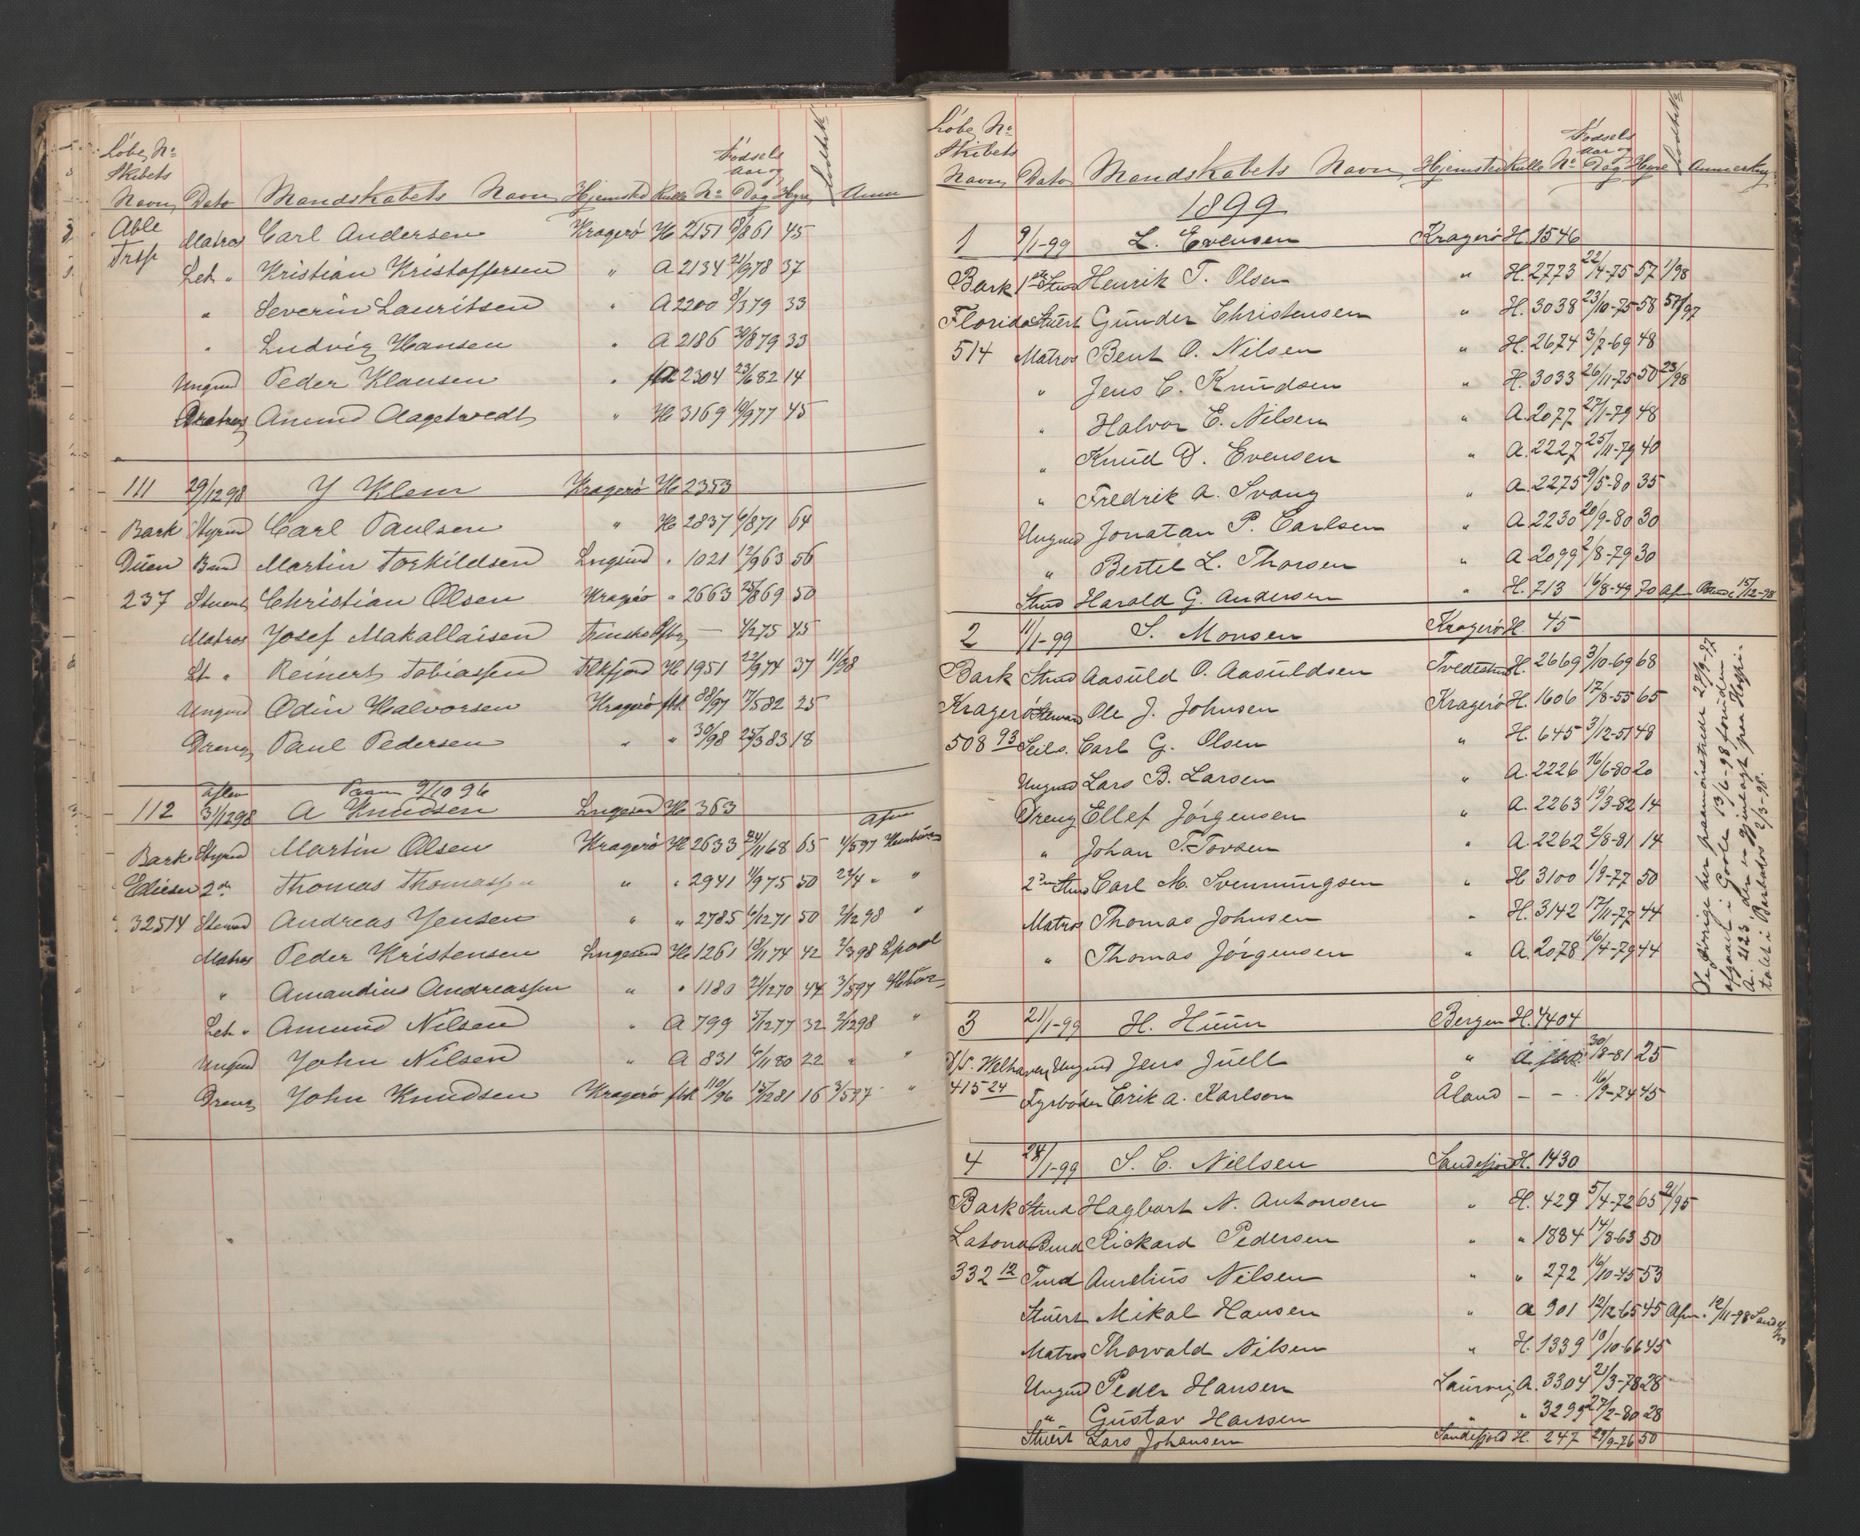 Løbe No
Skibets
Navn Dato Mandskabets Navn Hjemsted Rulle No Fødsels Aar og Dag Hyre Anm
Able Matros Carl Andersen Kragerø H 2151 61 45
Trsp Let " Kristian Kristoffersen " A 2134 21/9 78 37
" Severin Lauritsen " A 2200 79 33
" Ludvig Hansen " A 2186 30/8 79 33
Ungmd Peder Klausen " 2304 23/6 82 14
Matros Anund Aagetvedt " H 3169 77 45
111 29/12 98 Y Klem Kragerø H 2353
Bark Styrmd Carl Paulsen " H 2837 6/8 71 64
Duen Bmd Martin Torkildsen Lngsund " 1021 12/9 63 56
237 Stuert Christian Olsen Kragerø " 2663 25/8 69 50
Matros Josef Makallaisen — 4/2 75 45
Lt " Reinert Tobiassen H 1951 22/9 74 37 11/98
Ungmd Odin Halvorsen Kragerø fbl 88/97 17/5 82 25
Dreng Paul Pedersen " " 30/98 25/3 83 18
Paam 9/10 96
112 31/12 98 A Knudsen Lngesund H 363 Afm
Bark Styrmd Martin Olsen Kragerø H 2633 24/11 68 65 1/5 97
Ediesen 2den Thomas Thomassen " " 2941 11/9 75 50 24/4 " "
325 14 Steward Andreas Jensen " " 2785 6/12 71 50 7/12 98 "
Matros Peder Kristensen Lngesund H 1261 74 42 7/3 98 Lpool
" Amandius Andreassen " " 1180 21/12 70 44 3/5 97
Let " Amund Nilsen " A 799 5/12 77 32 2/12 98 "
Ungmd John Nilsen " A 831 6/11 80 22 " "
Dreng John Knudsen Kragerø fbl 110/96 15/12 81 16 3/5 97 "
Løbe No
Skibets
Navn Dato Mandskabets Navn Hjemsted Rulle No Fødsels Aar og Dag Hyre Anmerkng
1899
1 9/1-99 L. Evensen Kragerø H. 1546
Bark 1ste Stmd Henrik T. Olsen " H. 2773 22/4-75 57 1/98
Florida Stuert Gunder Christensen " H. 3038 23/10-75 58 57/97
514 Matros Bent O. Nilsen " H. 2674 3/7-69 48
" Jens C. Knudsen " H. 3033 26/11-75 50 23/98
" Halvor E. Nilsen " A. 2077 27/1-79 48
" Knud D. Evensen " A. 2227 25/11-79 40
" Fredrik A. Svang " A. 2275 9/5-80 35
Ungmd Jonatan P. Carlsen " A. 2230 20/9-80 30
" Bertil L. Thorsen " A. 2099 2/8-79 30
Stmd Harald G. Andersen " H. 713 16/8-49 70 Afm 15/12-98
2 11/1-99 S. Monsen Kragerø H. 45
Bark Stmd Aasuld O. Aasuldsen Tvedestrand H. 2669 3/10-69 68
Kragerø Steward Ole J. Johnsen Kragerø H. 1606 17/8-55 65
508 93 Seils. Carl G. Olsen " H. 645 3/12-51 48
Ungmd Lars B. Larsen " A. 2226 16/6-80 20
Dreng Ellef Jørgensen " A. 2263 19/3-82 14
" Johan T. Tovsen " A. 2262 2/8-81 14
2den Stmd Carl M. Svenningsen " H 3100 1/9-77 50
Matros Thomas Johnsen " H. 3142 17/11-77 44
" Thomas Jørgensen " A. 2078 16/4-79 44
De øvrige her paamønstrede 29/9-97
afgaaet i Goole 13/6-98 foruden
A. 2123 den er gjenlagt paa Hospi-
talet i Barbados 2/3-98.
3 21/1-99 H. Huun Bergen H. 7404
D/S. Welhaven Ungmd Jens Juell " A. 30/8-81 25
415 24 Fyrbøder Erik A. Karlson Åland – – 16/9-74 45
4 28/1-99 S. C. Nielsen Sandefjord H. 1430
Bark Stmd Hagbart N. Antonsen " H. 429 5/4-72 65 91/95
Latona Bmd Rickard Pedersen " " 1884 14/8-63 50
332 12 Tmd Aurelius Nilsen " " 272 16/10-45 53
Stuert Mikal Hansen " A 901 12/12-65 45 Afm. 12/11-98
Matros Thorvald Nilsen " H. 1339 10/10-66 45
Ungmd Peder Hansen Laurvig A. 3304 21/3-78 28
" Gustav Hansen " " 3295 27/2-80 28
Stuert Lars Johansen Sandefjord H. 247 29/9-76 50